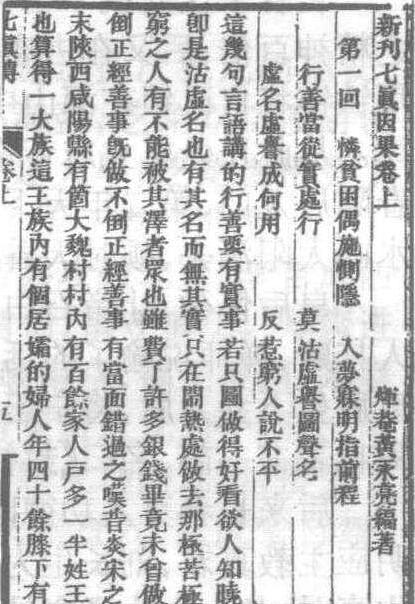 新刊七眞因果卷上 煇菴黃永亮編著
第一回 憐貧困偶施惻隱 入夢寐明指前程
行善當從實處行 莫沽虛譽圖聲名
虛名虛譽成何用 反惹窮人說不平
這幾句言語講的行善要有實事若只圖做得好看欲人知曉
卽是沽虛名也有其名而無其實只在閙熱處做去那極苦極
窮之人有不能被其澤者眾也雖費了許多銀錢畢竟未曾做
倒正經善事旣做不倒正經善事有當面錯過之嘆昔炎宋之
末陝西咸陽縣有箇大魏村村內有百餘家人戶多一半姓王
也算得一大族這王族內有個居孀的婦人年四十餘膝下有
七眞傳 卷上